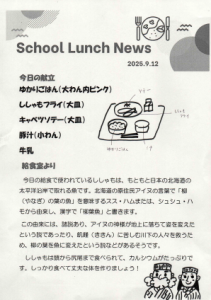 School Lunch News
2025.9.12
今日の献立
ゆかりごはん(大わん内ピンク)
ししゃもフライ(大皿)
キャベツソテー(大皿)
豚汁(小わん)
牛乳
給食室より
今日の給食で使われているししゃもは、もともと日本の北海道の
太平洋沿岸で取れる魚です。北海道の原住民アイヌの言葉で「柳
(やなぎ)の葉の魚」を意味するスス・ハムまたは、シュシュ・ハ
モから由来し、漢字で「柳葉魚」と書きます。
この由来には、諸説あり、アイヌの神様が地上に落ちて姿を変えた
という説であったり、飢饉(ききん)に苦しむ川下の人々を救うた
め、柳の葉を魚に変えたという説などがあるそうです。
ししゃもは頭から尻尾まで食べられて、カルシウムがたっぷりで
す。しっかり食べて丈夫な体を作りましょう!